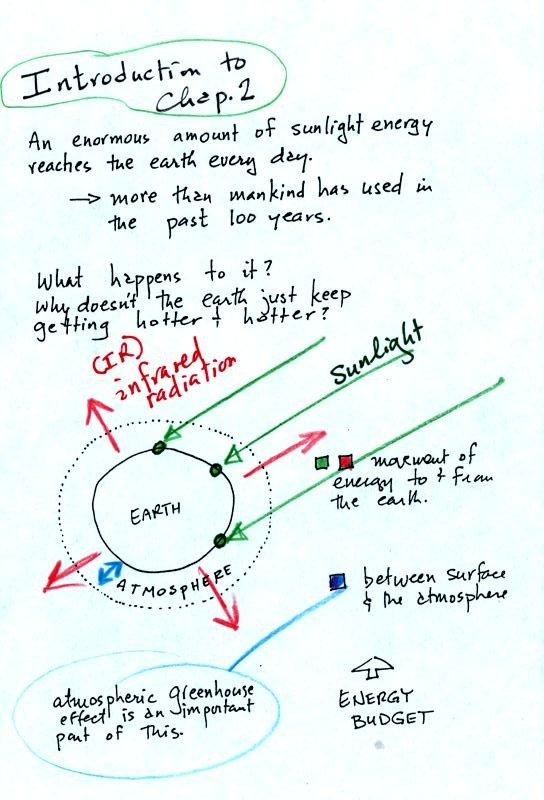 Introduction to
Chap. 2
An enormous amount of sunlight energy
reaches the earth every day.
→ more than mankind has used in
the past 100 years.
What happens to it?
Why doesn't the earth just keep
getting hotter & hotter?
(IR)
infrared
radiation
Sunlight
EARTH
ATMOSPHERE
movement of
energy to & from
the earth.
between surface
& the atmosphere
atmospheric greenhouse
effect is an important
part of this.
ENERGY
BUDGET